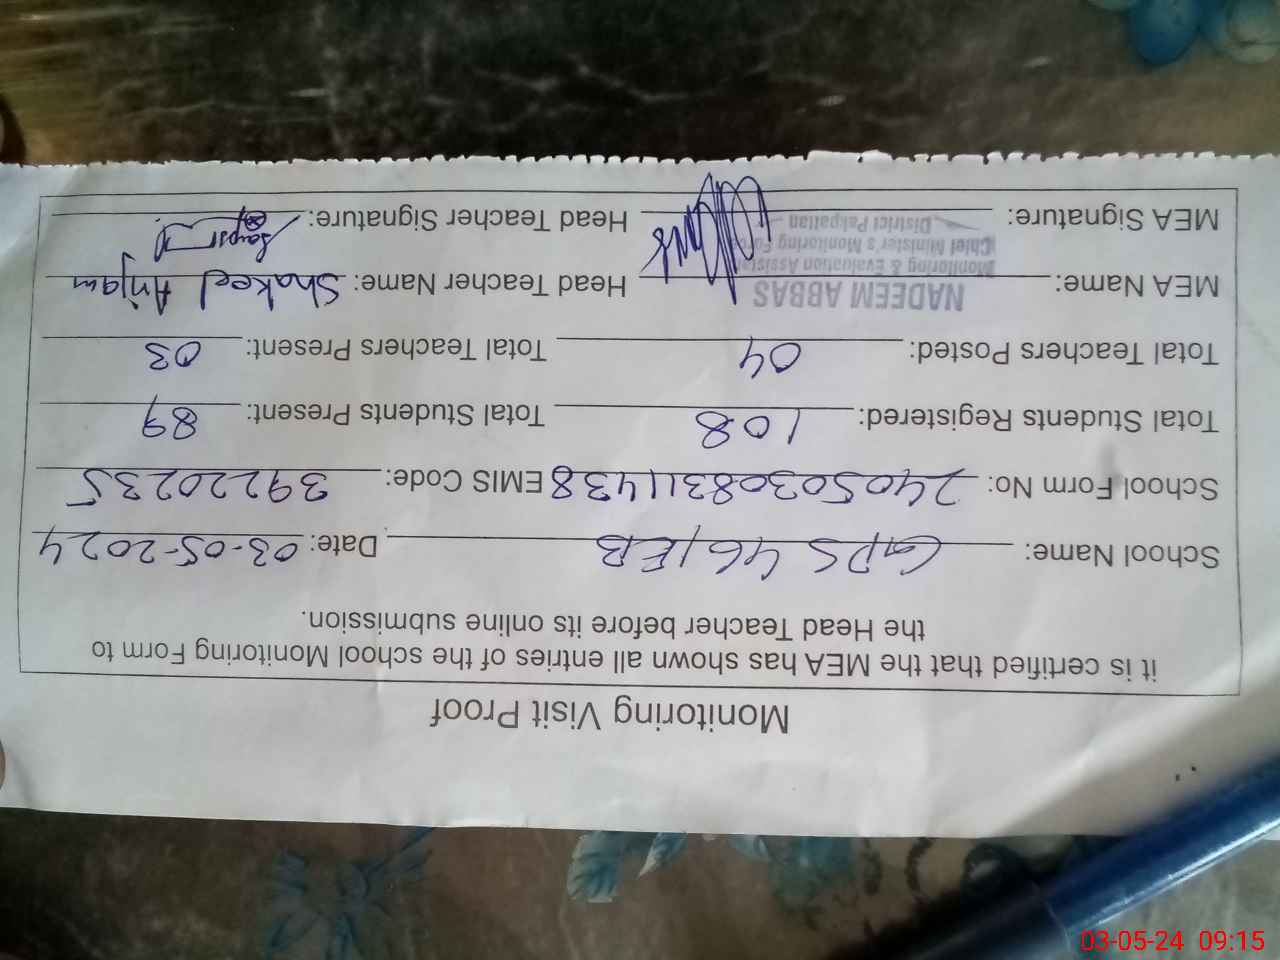 Monitoring Visit Proof
it is certified that the MEA has shown all entries of the school Monitoring Form to
the Head Teacher before its online submission.
School Name: GPS 46/EB Date: 03-05-2024
School Form No: 24050308311438 EMIS Code: 39220235
Total Students Registered: 108 Total Students Present: 89
Total Teachers Posted: 04 Total Teachers Present: 03
MEA Name: NADEEM ABBAS Head Teacher Name: Shakeel Anjam
Monitoring & Evaluation Assistant
Chief Minister's Monitoring Force
District Pakpattan
MEA Signature: Head Teacher Signature:
03-05-24 09:15